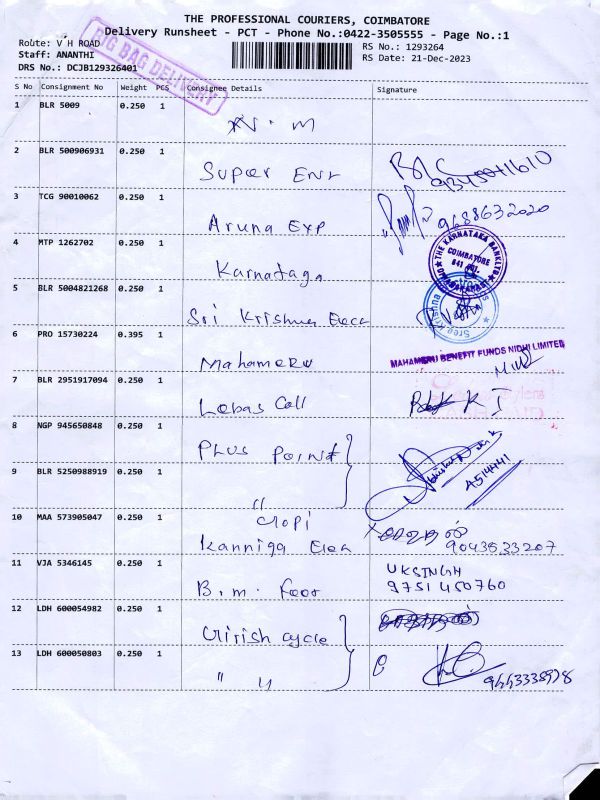 THE PROFESSIONAL COURIERS, COIMBATORE
Delivery Runsheet - PCT - Phone No.:0422-3505555 - Page No.:1
Route: V H ROAD
RS No.: 1293264
Staff: ANANTHI
RS Date: 21-Dec-2023
DRS No.: DCJB129326401
BIG BAG DELIVERY
S No Consignment No Weight PCS Consignee Details Signature
1 BLR 5009 0.250 1
2 BLR 500906931 0.250 1 Super Entr
3 TCG 90010062 0.250 1 Aruna Exp 9688632020
4 MTP 1262702 0.250 1 Karnataga
THE KARNATAKA BANK LTD
COIMBATORE
5 BLR 5004821268 0.250 1 Sri Krishna Elecc
Sree Krishna
6 PRO 15730224 0.395 1 Mahameru
MAHAMERU BENEFIT FUNDS NIDHI LIMITED
7 BLR 2951917094 0.250 1 Lebas Call
8 NGP 945650848 0.250 1 Plus Point
9 BLR 5250988919 0.250 1 "
A514441
10 MAA 573905047 0.250 1 Gopi
Kanniga Elec 9043533207
11 VJA 5346145 0.250 1 B.m. Foor
UKSINGH
9751450760
12 LDH 600054982 0.250 1 Girish cycle
13 LDH 600050803 0.250 1 " "